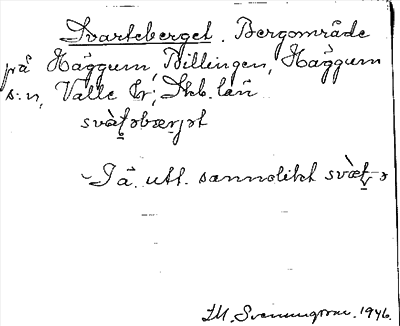 Svarteberget. Bergområde
på Häggum Billingen, Häggum
s:n, Valle hr; Skb. län
svàʈəbærjət
I ä. utt. sannolikt svàʈə
M. Svenungsson. 1946.